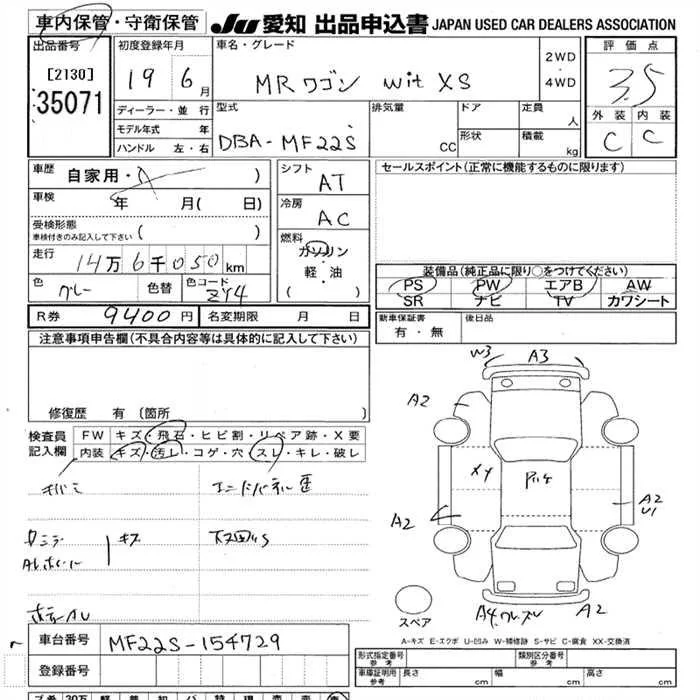 車内保管・守衛保管
JU 愛知 出品申込書 JAPAN USED CAR DEALERS ASSOCIATION
出品番号
[2130]
35071
初度登録年月
19 6月
ディーラー・並行
モデル年式 年
ハンドル 左・右
車名・グレード
MRワゴン wit XS
2WD
・
4WD
型式
DBA-MF22S
排気量
CC
ドア
形状
定員
人
積載
kg
評価点
3.5
外装 内装
C C
車歴
自家用・( )
車検
年 月( 日)
受検形態
車検付きのみ記入して下さい ( )
走行
14万6千050km
色
グレー
色替
色コード
ZY4
シフト
AT
冷房
AC
燃料
ガソリン
・
軽・油
( )
セールスポイント(正常に機能するものに限ります)
装備品(純正品に限り○をつけてください)
PS PW エアB AW
SR ナビ TV カワシート
R券 9400円 名変期限 月 日
新車保証書
有・無
後日品
注意事項申告欄(不具合内容等は具体的に記入して下さい)
修復歴 有(箇所 )
検査員
記入欄
FW キズ・飛石・ヒビ割・リペア跡・X要
内装 キズ・汚レ・コゲ・穴・スレ・キレ・破レ
キズ
W3
A3
A2
A2
A2
U1
A4
A2
スペア
A-キズ E-エクボ U-凹み W-補修跡 S-サビ C-腐食 XX-交換済
車台番号 MF22S-154729
登録番号
形式指定番号
参考
類別区分番号
参考
車庫証明用
参考
長さ cm 幅 cm 高さ cm